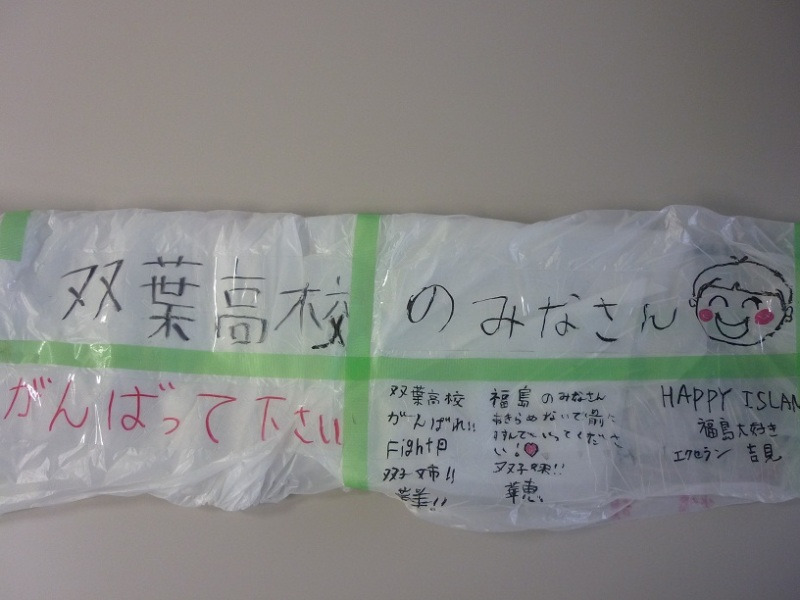 双葉高校のみなさん
がんばって下さい
双葉高校
がんばれ!!
Fight日
双子姉!!
福島のみなさん
あきらめないで前に
すすんでいってくださ
い!
双子妹!!
華恵
HAPPY ISLAN
福島大好き
エクセラン 吉見